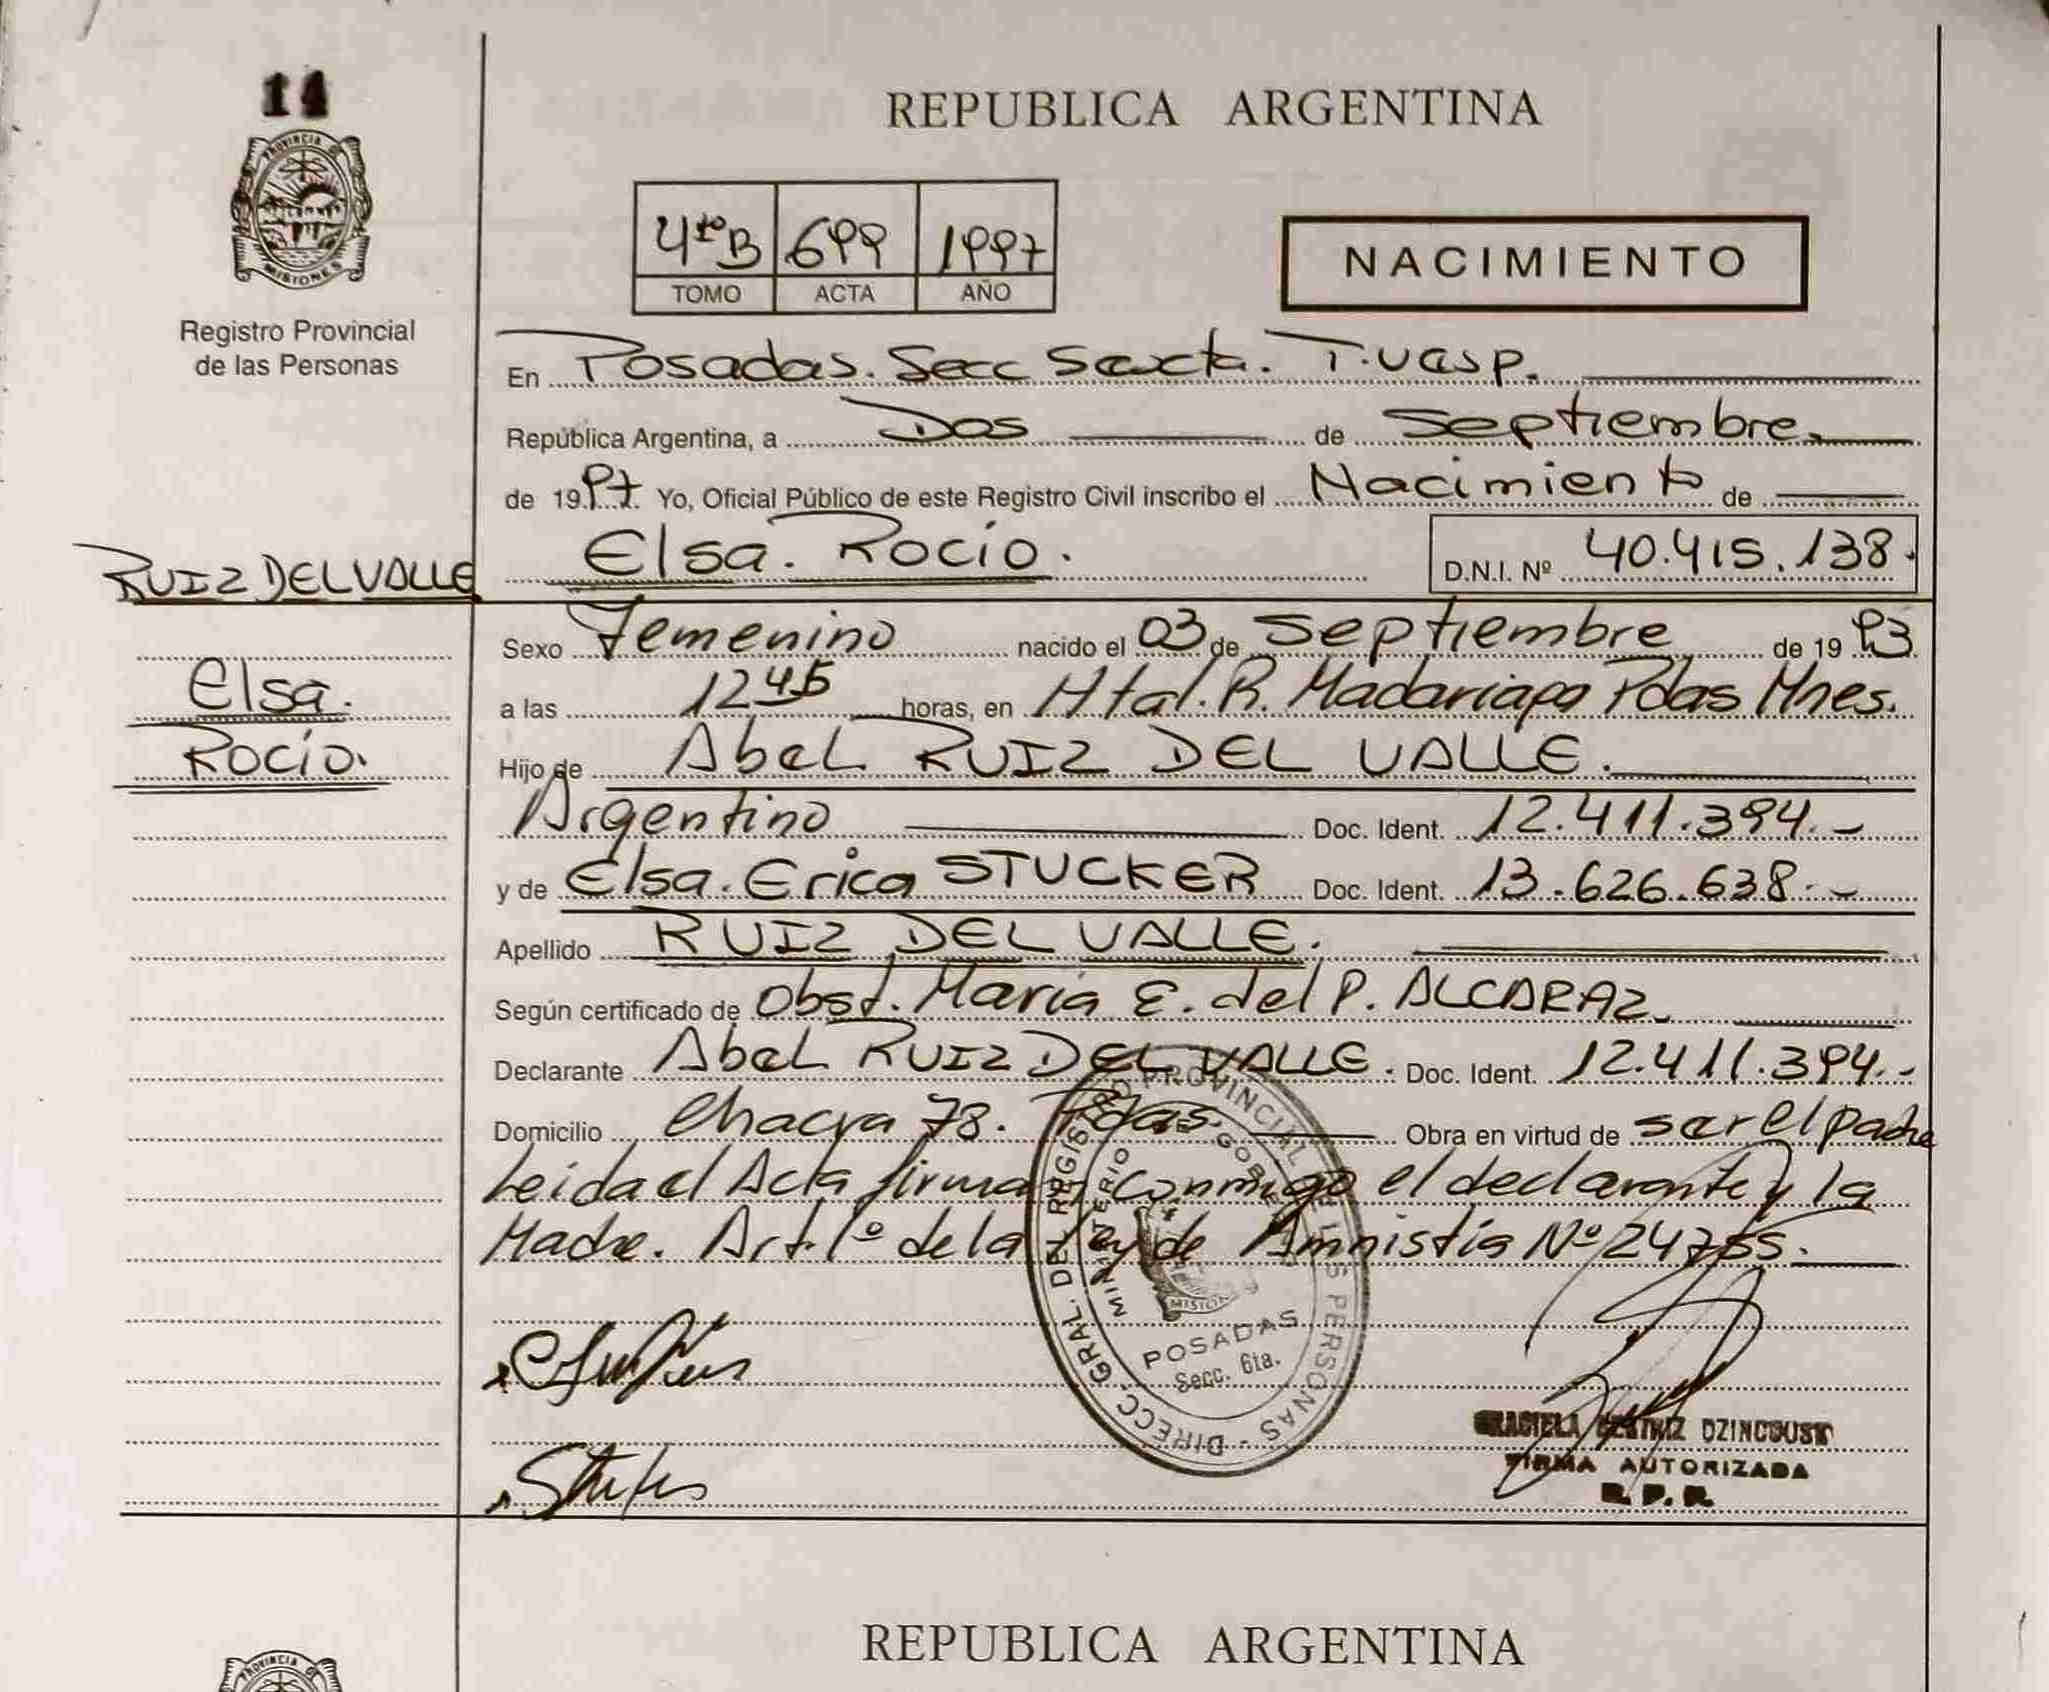 14
PROVINCIA DE
MISIONES
Registro Provincial
de las Personas
REPUBLICA ARGENTINA
4to B 699 1997
TOMO ACTA AÑO
NACIMIENTO
En Posadas. Secc Sexta. T.
República Argentina, a Dos de Septiembre
de 1997. Yo, Oficial Público de este Registro Civil inscribo el Nacimiento de
RUIZ DEL VALLE
Elsa. Rocío. D.N.I. Nº 40.415.138.
Sexo Femenino nacido el 03 de Septiembre de 1993
Elsa.
a las 12 45 horas, en Htal. R. Madariaga Pdas Mnes.
Rocío.
Hijo de Abel RUIZ DEL VALLE.
Argentino Doc. Ident. 12.411.394.-
y de Elsa. Erica STUCKER Doc. Ident. 13.626.638.-
Apellido RUIZ DEL VALLE.
Según certificado de Obst. María E. del P. ALCARAZ
Declarante Abel RUIZ DEL VALLE. Doc. Ident. 12.411.394.-
Domicilio Chacra 78. Pdas. Obra en virtud de ser el padre
Leida el Acta firman conmigo el declarante y la
Madre. Art. 1º de la Ley de Amnistía Nº 24755.
DIRECC. GRAL. DEL REGISTRO PROVINCIAL DE LAS PERSONAS
MINISTERIO GOBIERNO
MISIONES
POSADAS
Secc. 6ta.
GRACIELA BEATRIZ
FIRMA AUTORIZADA
R. P. P.
REPUBLICA ARGENTINA
PROVINCIA DE